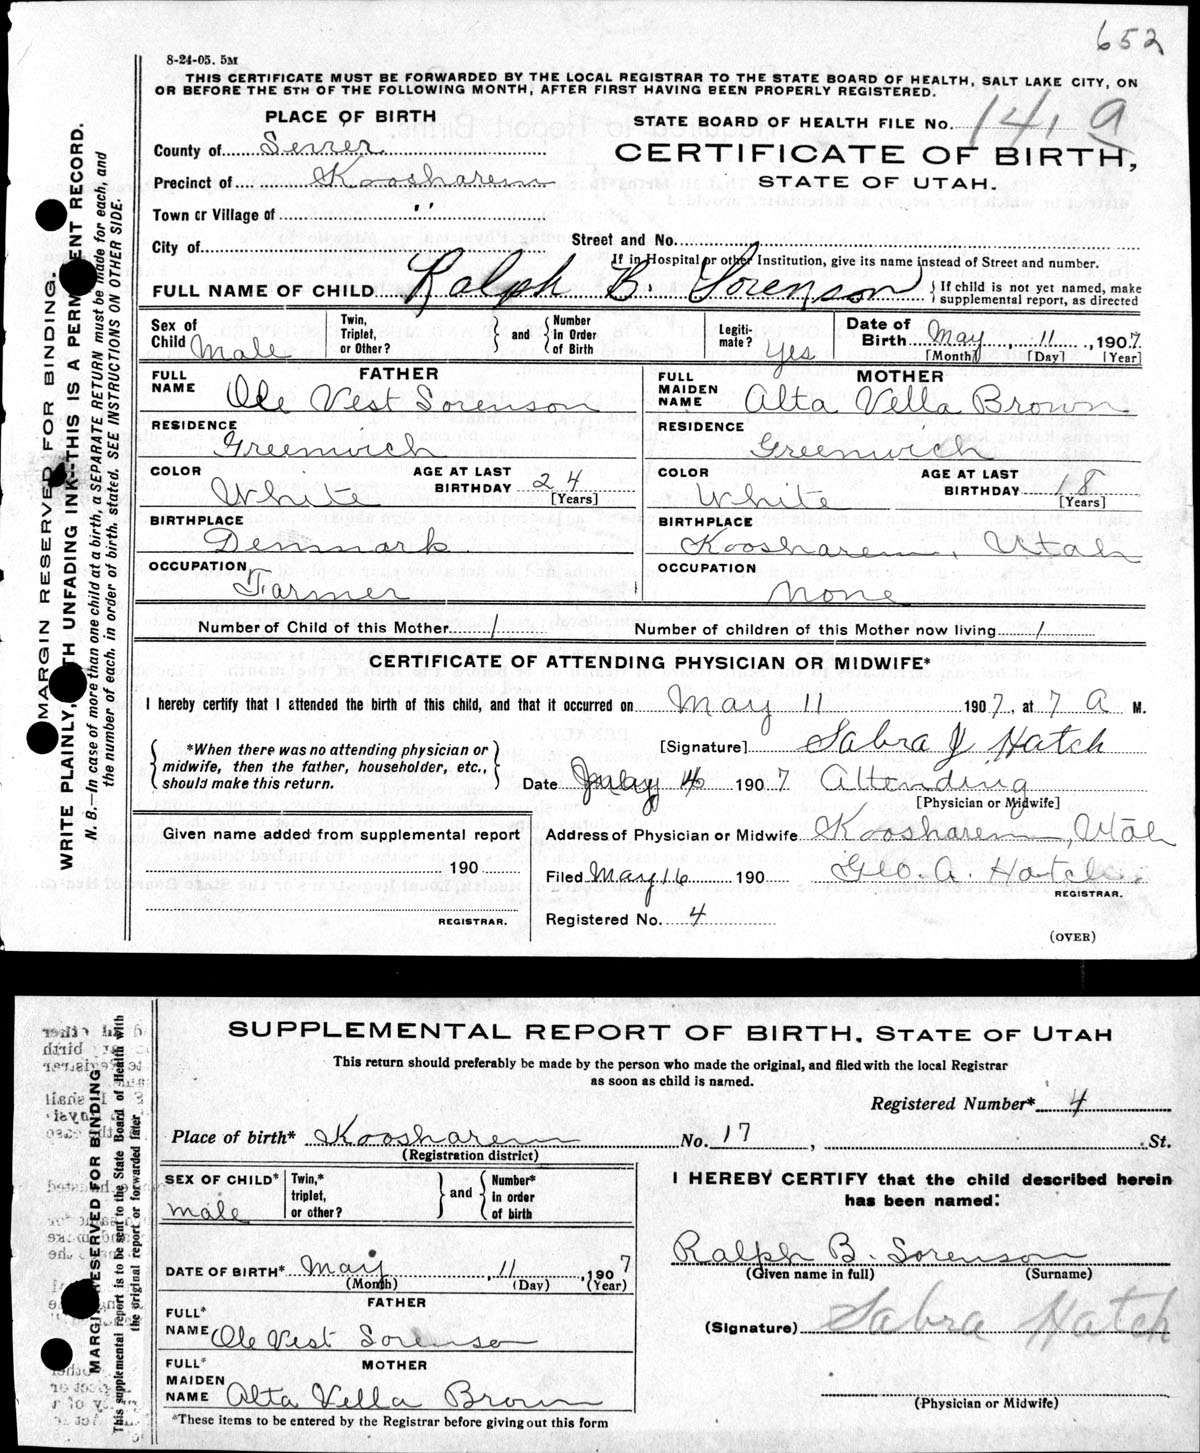 652
8-24-05. 5M
THIS CERTIFICATE MUST BE FORWARDED BY THE LOCAL REGISTRAR TO THE STATE BOARD OF HEALTH, SALT LAKE CITY, ON
OR BEFORE THE 5TH OF THE FOLLOWING MONTH, AFTER FIRST HAVING BEEN PROPERLY REGISTERED.
PLACE OF BIRTH
STATE BOARD OF HEALTH FILE No. 141 a
County of Sevier
CERTIFICATE OF BIRTH,
STATE OF UTAH.
Precinct of Koosharem
Town or Village of "
City of
Street and No.
If in Hospital or other Institution, give its name instead of Street and number.
FULL NAME OF CHILD Ralph B. Sorenson } If child is not yet named, make supplemental report, as directed
Sex of Child Male
Twin, Triplet, or Other? } and { Number in Order of Birth
Legiti-mate? Yes
Date of Birth May, 11, 1907
[Month] [Day] [Year]
FATHER
FULL NAME Ole Vest Sorenson
MOTHER
FULL MAIDEN NAME Alta Vella Brown
RESIDENCE Greenwich
RESIDENCE Greenwich
COLOR White AGE AT LAST BIRTHDAY 24 [Years]
COLOR White AGE AT LAST BIRTHDAY 18 [Years]
BIRTHPLACE Denmark
BIRTHPLACE Koosharem, Utah
OCCUPATION Farmer
OCCUPATION None
Number of Child of this Mother 1 Number of children of this Mother now living 1
CERTIFICATE OF ATTENDING PHYSICIAN OR MIDWIFE*
I hereby certify that I attended the birth of this child, and that it occurred on May 11 1907, at 7 A M.
[Signature] Sabra J Hatch
*When there was no attending physician or
midwife, then the father, householder, etc.,
should make this return.
Date May 16 1907 Attending
[Physician or Midwife]
Given name added from supplemental report
190
REGISTRAR.
Address of Physician or Midwife Koosharem, Utah
Filed May 16 190 Geo. A. Hatch
REGISTRAR.
Registered No. 4
(OVER)
MARGIN RESERVED FOR BINDING.
WRITE PLAINLY, WITH UNFADING INK—THIS IS A PERMANENT RECORD.
N. B.—In case of more than one child at a birth, a SEPARATE RETURN must be made for each, and
the number of each, in order of birth, stated. SEE INSTRUCTIONS ON OTHER SIDE.
SUPPLEMENTAL REPORT OF BIRTH, STATE OF UTAH
This return should preferably be made by the person who made the original, and filed with the local Registrar
as soon as child is named.
Registered Number* 4
Place of birth* Koosharem No. 17, St.
(Registration district)
SEX OF CHILD* Male
Twin,* triplet, or other? } and { Number* in order of birth
I HEREBY CERTIFY that the child described herein
has been named:
DATE OF BIRTH* May, 11, 1907
(Month) (Day) (Year)
Ralph B. Sorenson
(Given name in full) (Surname)
FATHER
FULL* NAME Ole Vest Sorenson
(Signature) Sabra Hatch
MOTHER
FULL* MAIDEN NAME Alta Vella Brown
(Physician or Midwife)
*These items to be entered by the Registrar before giving out this form
MARGIN RESERVED FOR BINDING
This supplemental report is to be sent to the State Board of Health with
the original report or forwarded later